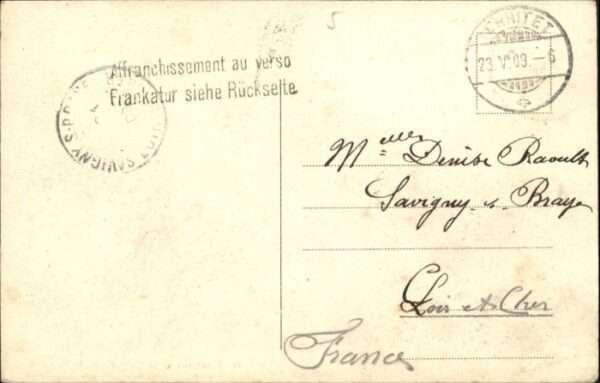 5
Affranchissement au verso
Frankatur siehe Rückseite
23. V. 09. – 6
SAVIGNY-S-BRAYE
Melle Denise Raoult
Savigny s. Braye
Loir et Cher
France